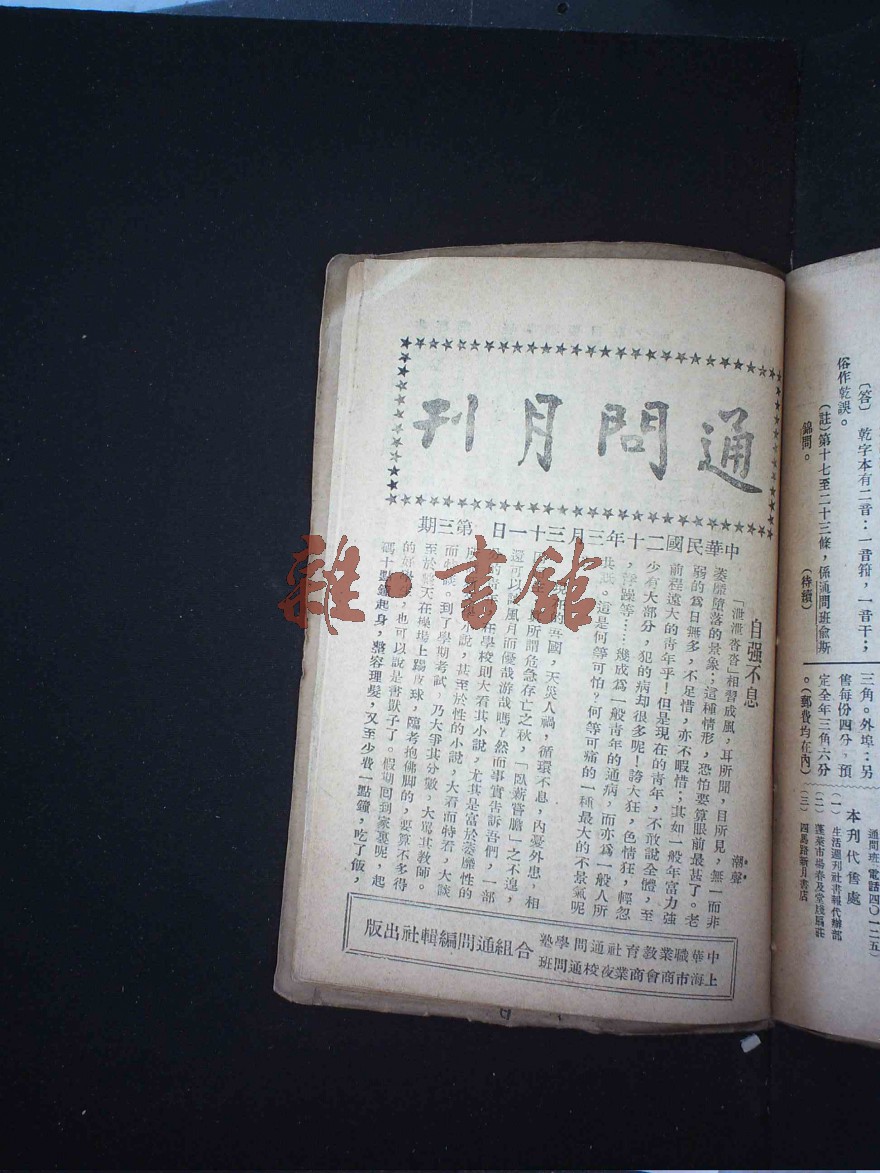 通問月刊
中華民國二十年三月三十一日　第三期
自强不息
潮聲
「泄泄沓沓」相習成風，耳所聞，目所見，無一而非
萎靡墮落的景象；這種情形，恐怕要算眼前最甚了。老
弱的爲日無多，不足惜，亦不暇惜；其如一般年富力强
前程遠大的青年乎！但是現在的青年，不敢說全體，至
少有大部分，犯的病却很多呢！誇大狂，色情狂，輕忽
，浮躁等……幾成爲一般青年的通病，而亦爲一般人所
共　。這是何等可怕？何等可痛的一種最大的不景氣呢
現在的吾國，天災人禍，循環不息，內憂外患，相
所謂危急存亡之秋，「臥薪嘗膽」之不遑，
還可以　風月而優哉游哉嗎？然而事實告訴吾們，一部
在學校則大看其小說，尤其是富於萎靡性的
小說，甚至於性的小說，大看而特看，大談
而特談。到了學期考試，乃大爭其分數，大罵其教師。
至於　天在操場上踢皮球，臨考抱佛脚的，要算不多得
的好　，也可以說是書獃子了。假期回到家裏呢，起
碼十點鐘起身，整容理髮，又至少費一點鐘，吃了飯，
中華職業教育社通問學塾
上海市商會商業夜校通問班
合組通問編輯社出版
〔答〕　乾字本有二音：一音符，一音干；
俗作乾誤。
（註）第十七至二十三條，係通問班俞斯
錦問。
（待續）
三角。外埠：另
售每份四分，預
定全年三角六分
。（郵費均在內）
通問班電話四〇一二五
本刊代售處
（一）
生活週刊社書報代辦部
（二）
蓬萊市場春及堂牋扇莊
（三）
四馬路新月書店
雜·書館